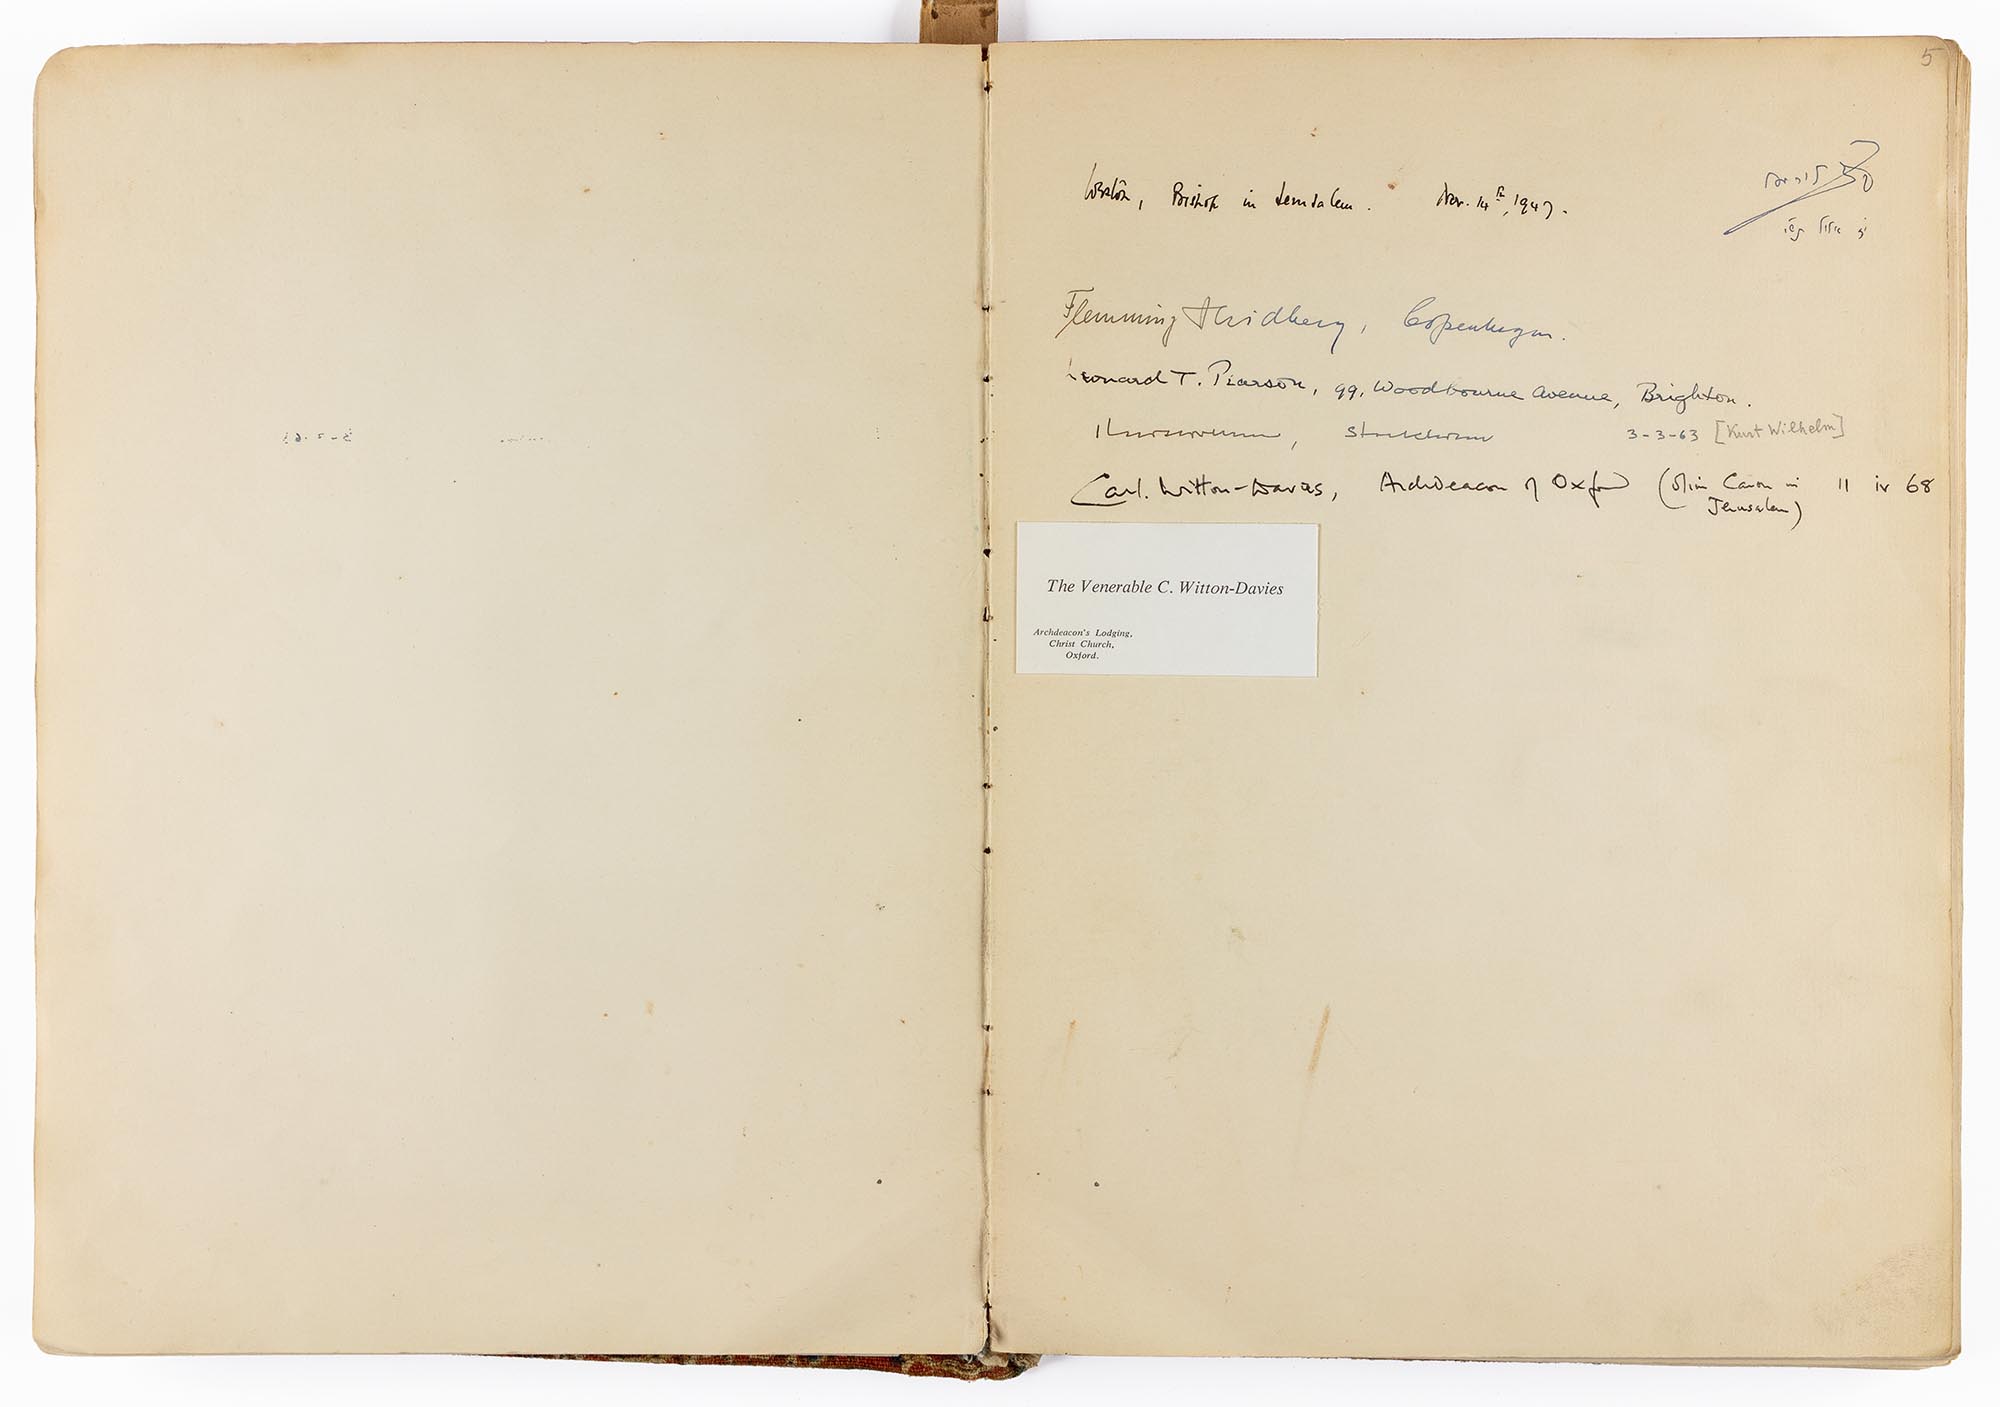 5
Weston, Bishop in Jerusalem. Nov. 14th, 1947.
Flemming Hvidberg, Copenhagen.
Leonard T. Pearson, 99, Woodbourne Avenue, Brighton.
Stockholm 3-3-63 [Kurt Wilhelm]
Carl. Witton-Davies, Archdeacon of Oxford (Olim Canon in 11 iv 68
Jerusalem)
The Venerable C. Witton-Davies
Archdeacon's Lodging,
Christ Church,
Oxford.